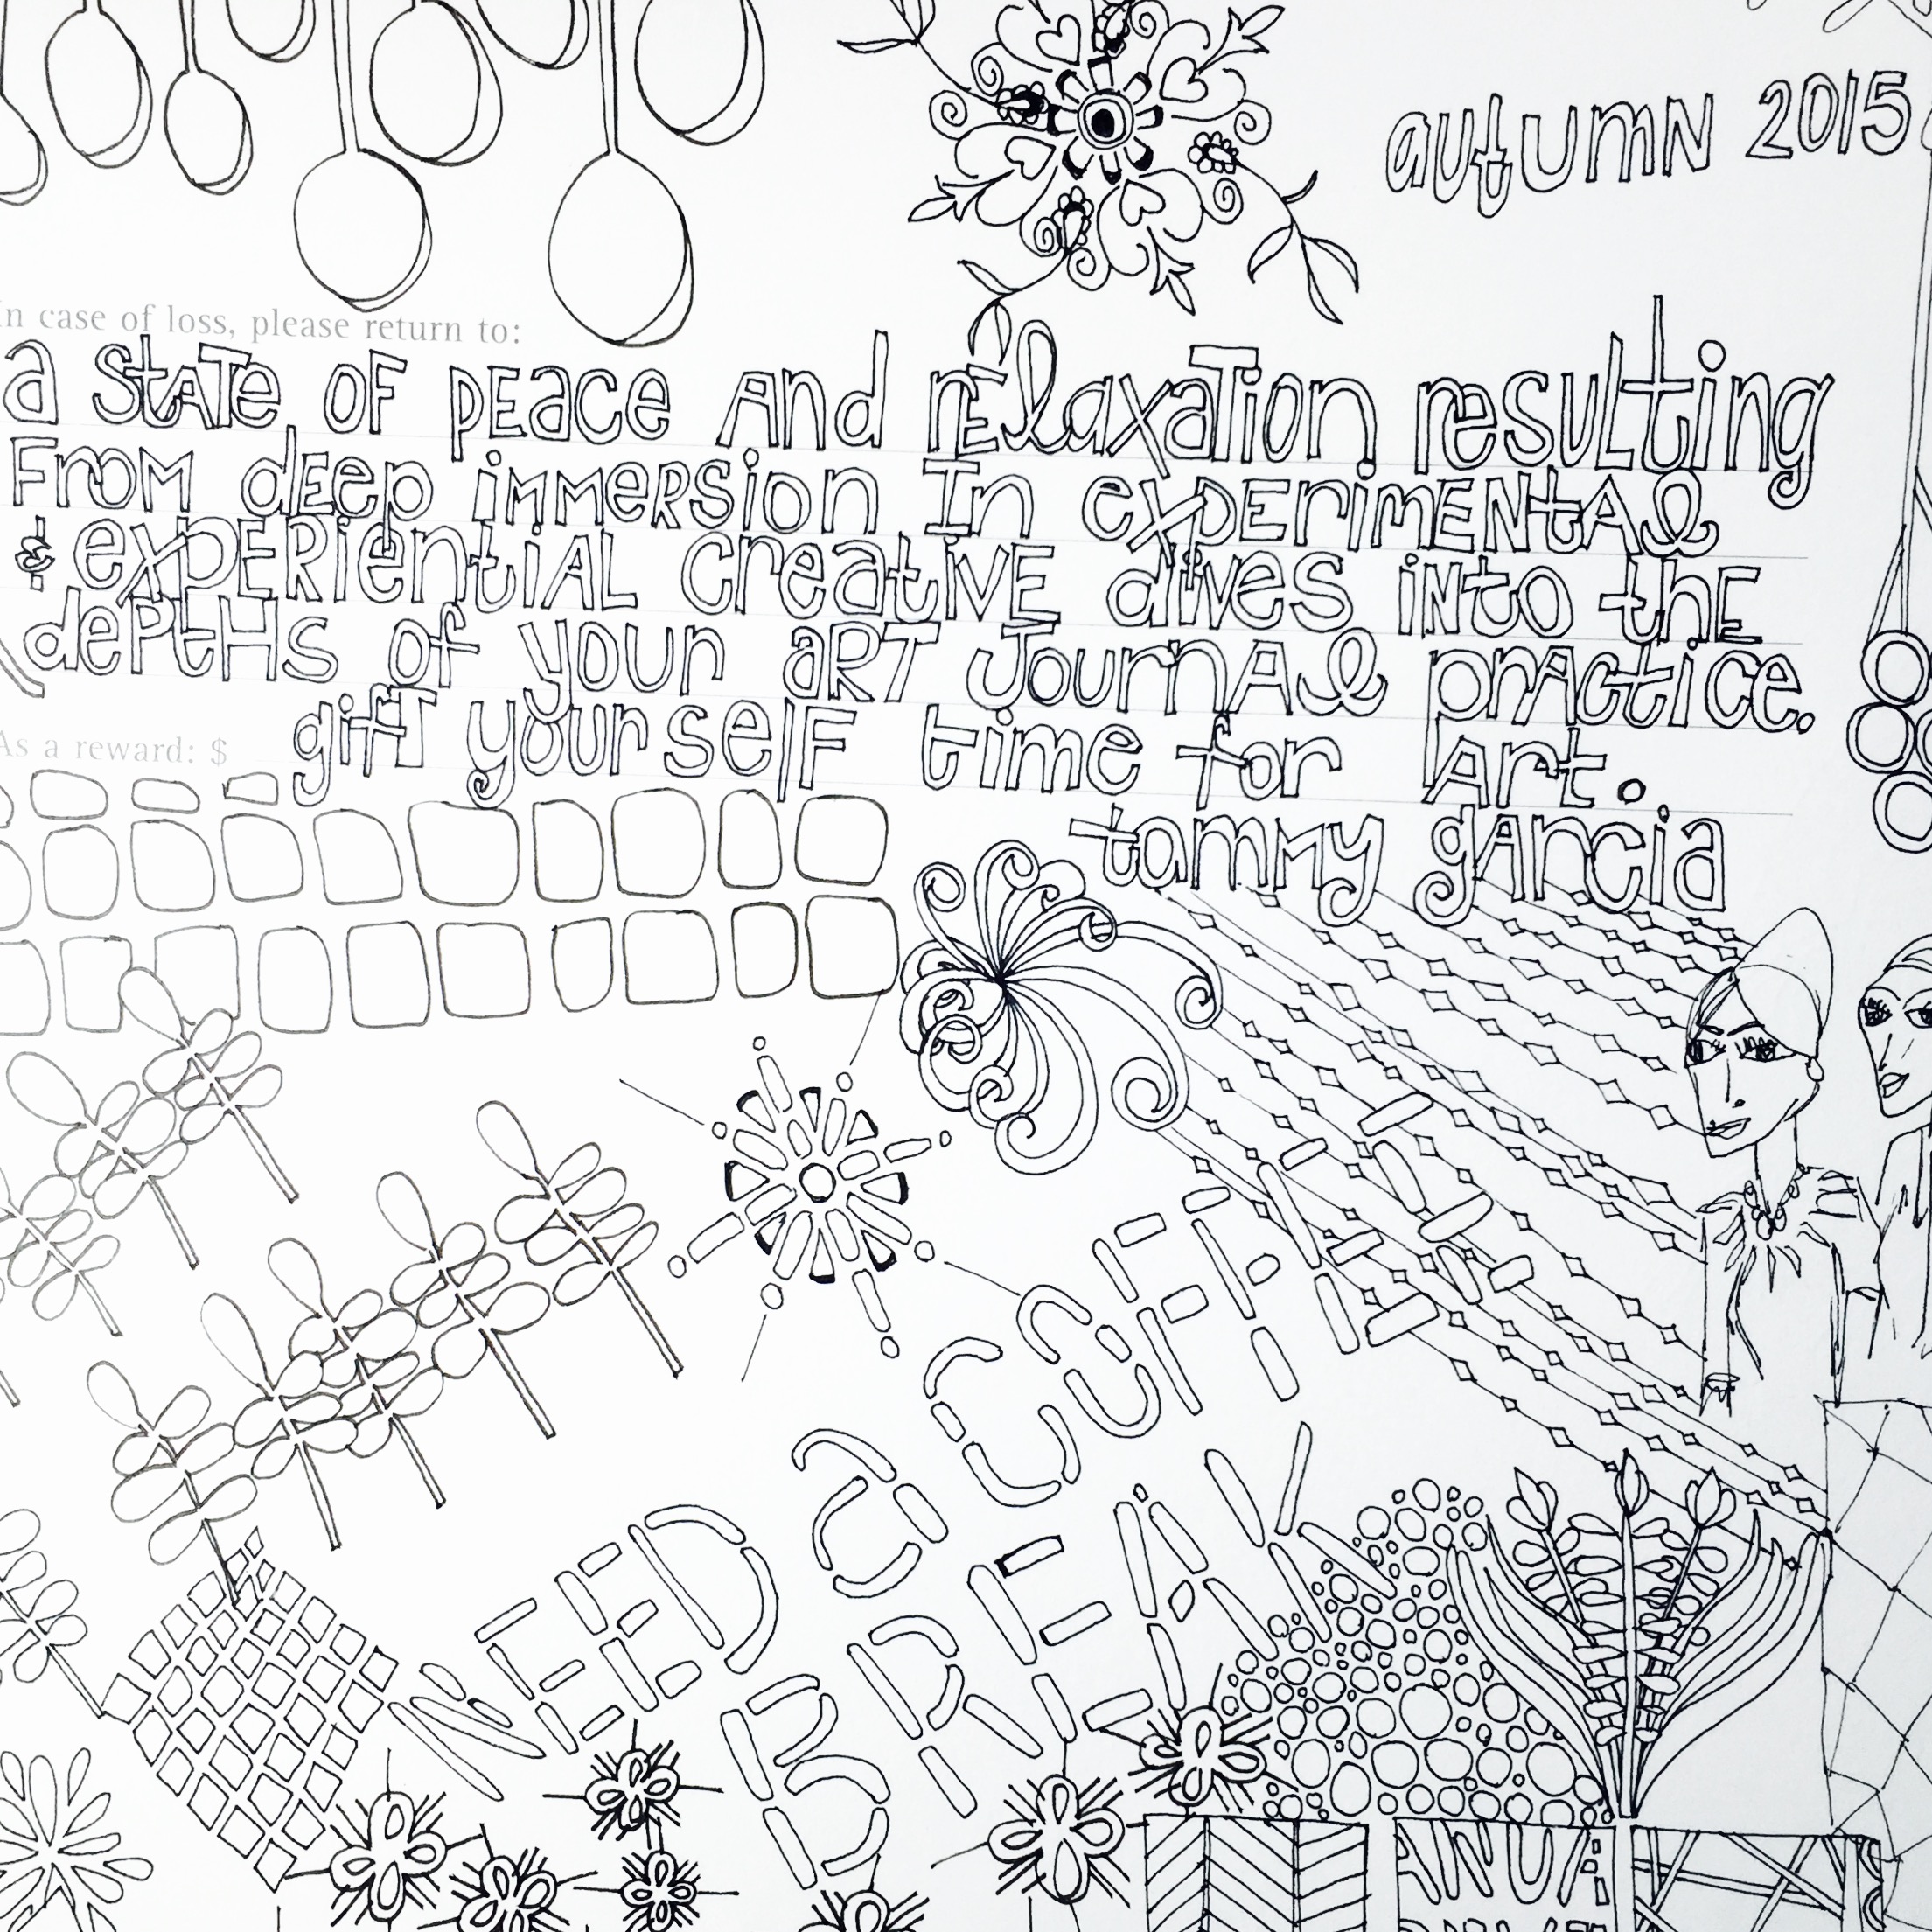 autumN 2015
In case of loss, please return to:
a stATe OF PEace And rElaxaTion resulting
From dEEp iMMeRsion In exPErimENtAl
& exPERiential creatiVE dives iNto thE
dePtHs of your aRT JournAl prActice.
As a reward: $
gifT yourselF time for Art.
tammy gArcia
NEED a COFFEE
BREAK
ANUA